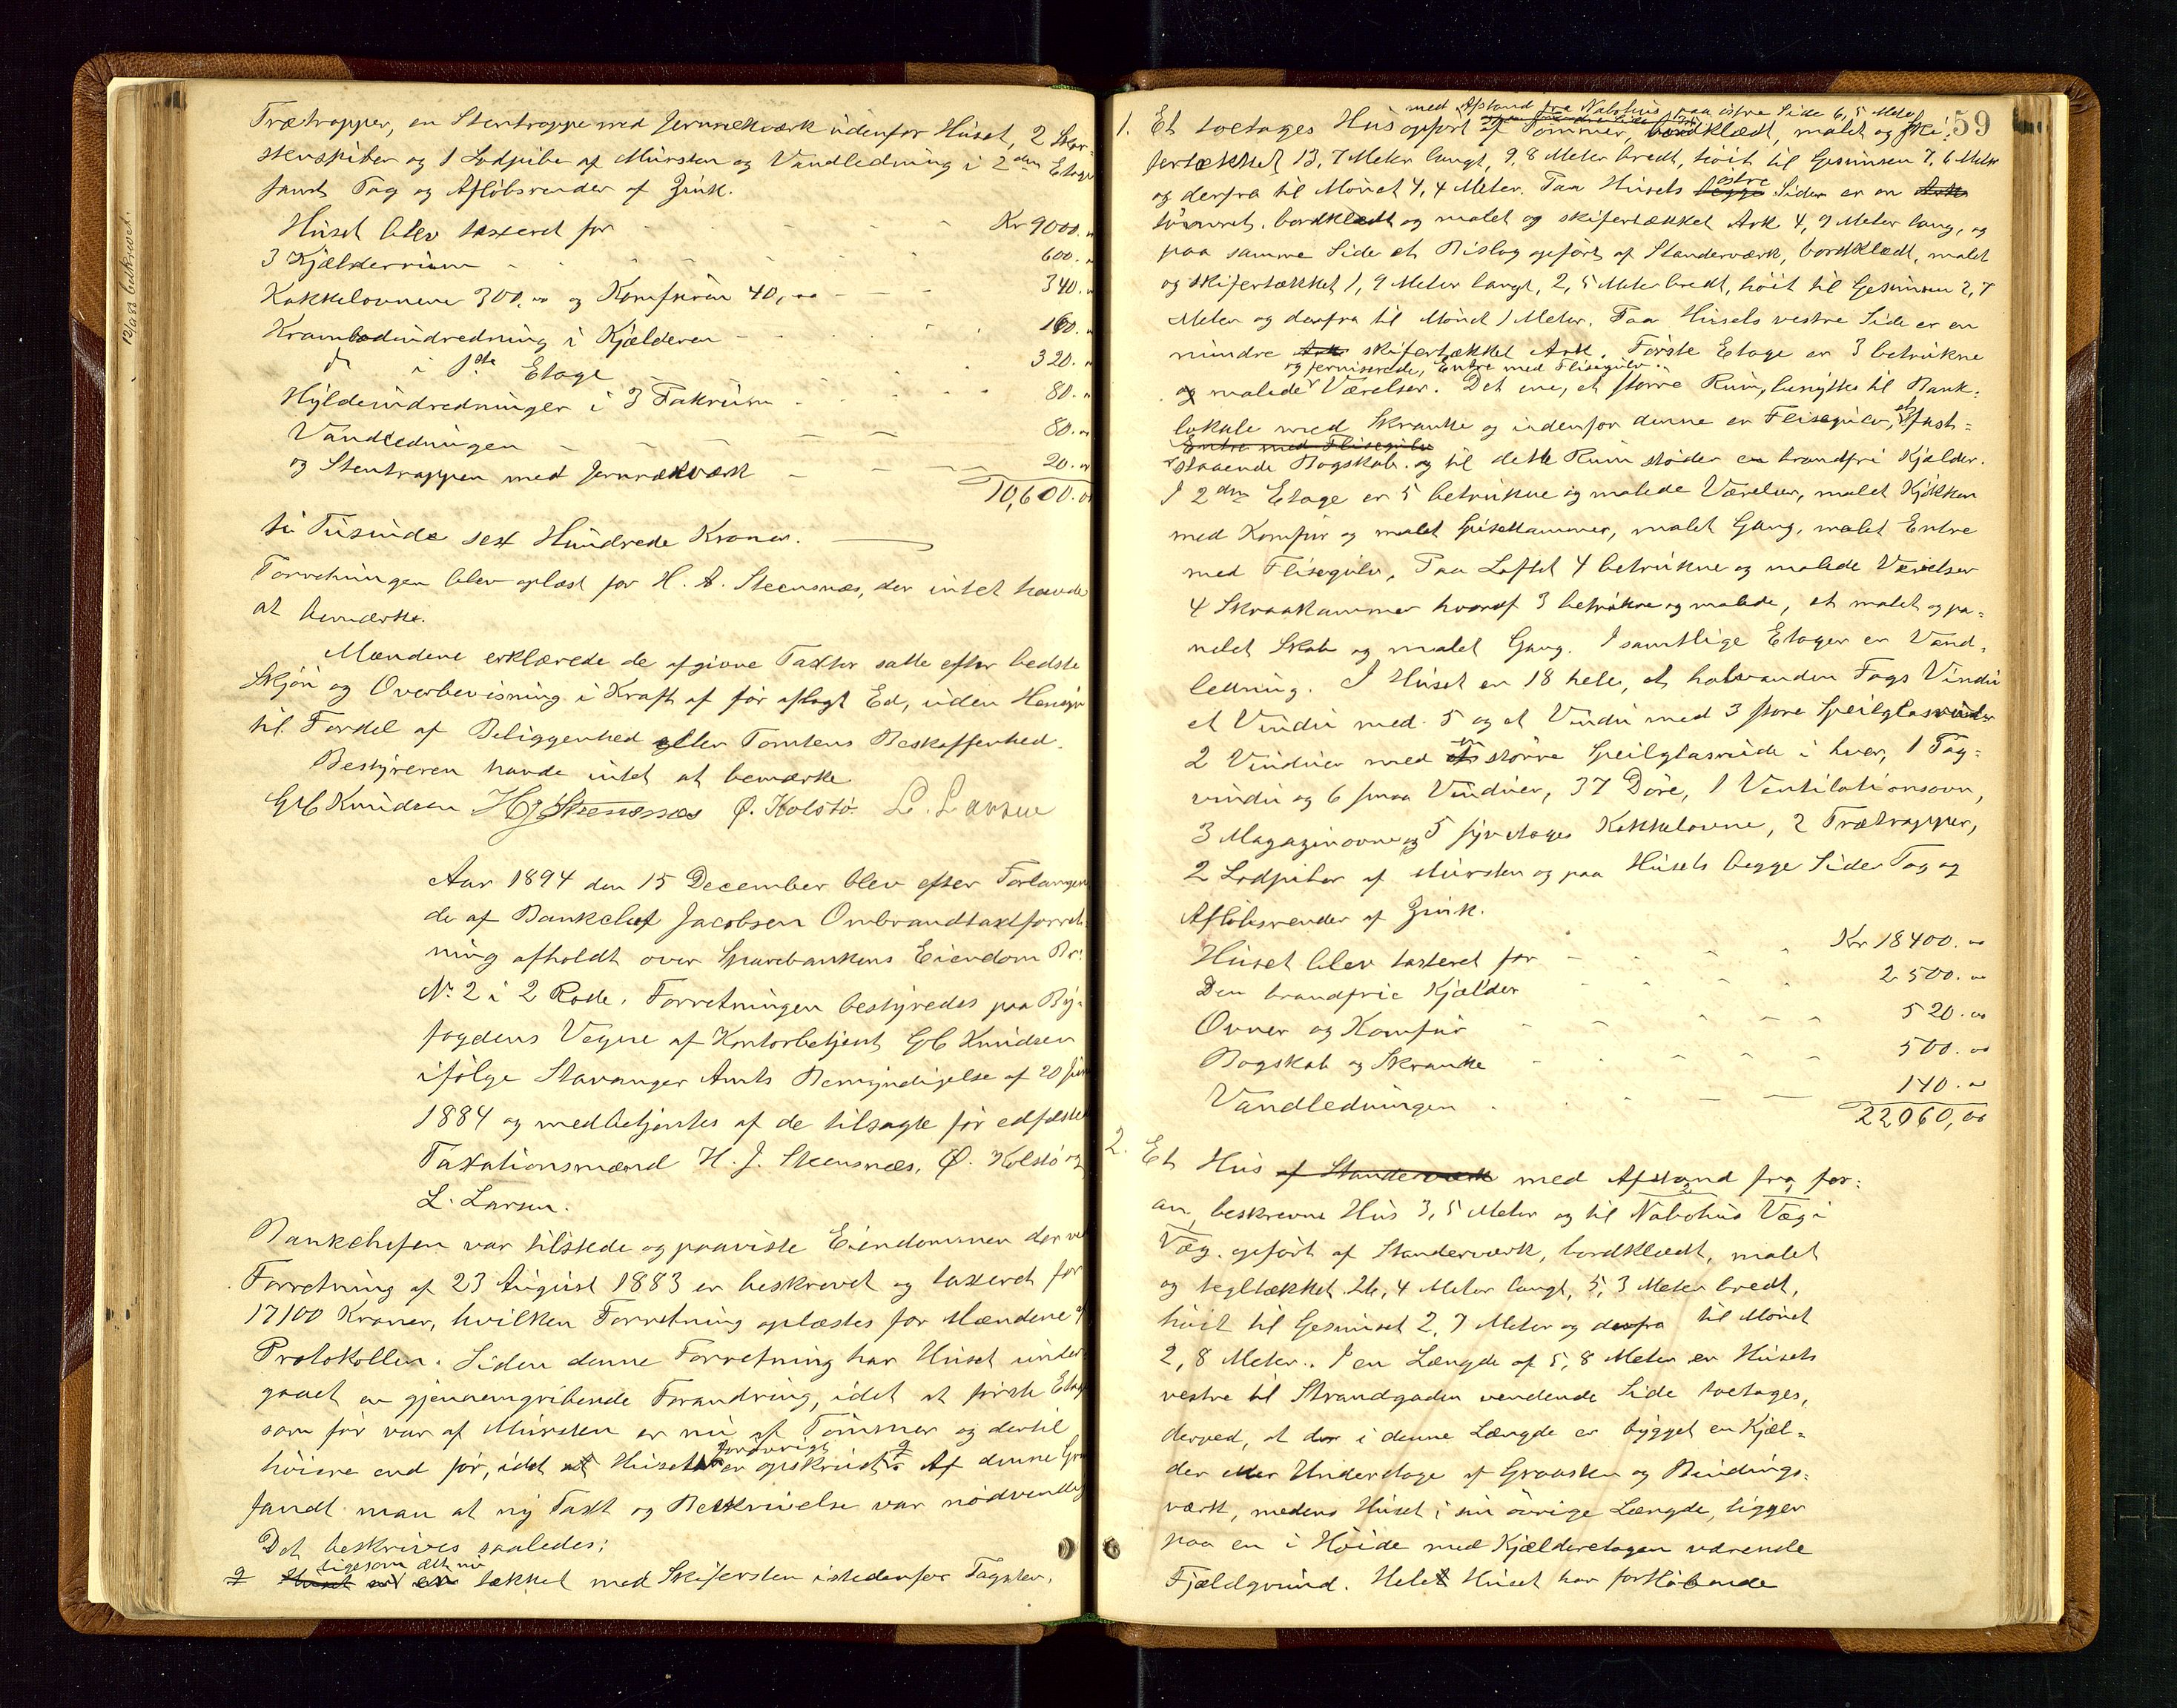 Trætrapper, en Stentrappe med Jernrækværk udenfor Huset, 2 Skor-
stenspiber og 1 Lodpibe af Mursten og Vandledning i 2den Etage
samt Tag og Afløbsrender af Zink.
Huset blev taxeret for Kr 9000.
3 Kjælderrum 600.
Kakkelovnene 300,00 og Komfuren 40,00 340.
Krambodindredning i Kjælderen 160.
do i 1ste Etage 320.
Hyldeindredninger i 3 Pakrum 80.
Vandledningen 80.
og Stentrappen med Jernrækværk 20.
10,600.00
ti Tusinde sex Hundrede Kroner.
Forretningen blev oplæst for H. A. Steensnæs, der intet havde
at bemærke.
Mændene erklærede de afgivne Taxter satte efter bedste
Skjøn og Overbevisning i Kraft af før aflagt Ed, uden Hensyn
til Fordel af Beliggenhed eller Tomtens Beskaffenhed.
Bestyreren havde intet at bemærke.
GC Knudsen HJ Steensnæs Ø. Kolstø. L. Larsen
Aar 1894 den 15 December blev efter Forlangen-
de af Bankchef Jacobsen Ombrandtaxtforret-
ning afholdt over Sparebankens Eiendom Br.
No 2 i 2 Rode. Forretningen bestyredes paa By-
fogdens Vegne af Kontorbetjent GC Knudsen
ifølge Stavanger Amts Bemyndigelse af 20 Juni
1884 og medbetjentes af de tilsagte før edfæstede
Taxationsmænd H. J. Steensnæs, Ø. Kolstø og
L. Larsen.
Bankchefen var tilstede og paaviste Eiendommen der ved
Forretning af 23 August 1883 er beskrevet og taxeret for
17100 Kroner, hvilken Forretning oplæstes for Mændene af
Protokollen. Siden denne Forretning har Huset under-
gaaet en gjennemgribende Forandring, idet at første Etage
som før var af Mursten er nu af Tømmer og dertil
forøvrigt
høiere end før, idet at Huset er opskruet. Af denne Grund
fandt man at ny Taxt og Beskrivelse var nødvendig
Det beskrives saaledes:
ligesom det nu
Huset er tækket med Skifersten istedenfor Tagsten.
12/9 83 beskrevet.
59
med Afstand fra Nabohus paa østre Side 6,5 Meter
1. Et toetages Hus opført af Tømmer, bordklædt, malet og ski-
fertækket 13,7 Meter langt, 9,8 Meter bredt, høit til Gesimsen 7,6 Meter
østre
og derfra til Mønet 4,4 Meter. Paa Husets begge Sider er en Ark
tømret, bordklædt og malet og skifertækket Ark 4,9 Meter lang, og
paa samme Side et Bislag opført af Standerværk, bordklædt, malet
og skifertækket 1,9 Meter langt, 2,5 Meter bredt, høit til Gesimsen 2,7
Meter og derfra til Mønet 1 Meter. Paa Husets vestre Side er en
mindre Ark skifertækket Ark. Første Etage er 3 betrukne
og fernisserede, Entre med Flisegulv.
og malede Værelser. Det ene, et større Rum, benyttes til Bank-
lokale med Skranke og udenfor denne er Flisegulv, et fast-
Entre med Flisegulv
staaende Bogskab. og til dette Rum støder en brandfri Kjælder.
I 2den Etage er 5 betrukne og malede Værelser, malet Kjøkken
med Komfur og malet Spisekammer, malet Gang, malet Entre
med Flisegulv. Paa Loftet 4 betrukne og malede Værelser
4 Skraakammer hvoraf 3 betrukne og malede, et malet og pa-
nelet Skab og malet Gang. I samtlige Etager er Vand-
ledning. I Huset er 18 hele, et halvanden Fags Vindu
et Vindu med 5 og et Vindu med 3 store Speilglasruder
en
2 Vinduer med et større Speilglasrude i hver, 1 Tag-
vindu og 6 smaa Vinduer, 37 Døre, 1 Ventilationsovn,
3 Magazinovne og 5 syvetages Kakkelovne, 2 Trætrapper,
2 Lodpiber af Mursten og paa Husets begge Sider Tag og
Afløbsrender af Zink.
Huset blev taxeret for Kr 18400.00
Den brandfrie Kjælder 2500.00
Ovner og Komfur 520.00
Bogskab og Skranke 500.00
Vandledningen 140.00
22060,00
2. Et Hus af Standerværk med Afstand fra for-
an beskrevne Hus 3,5 Meter og til Nabohus Væg i
Væg. opført af Standerværk, bordklædt, malet
og tegltækket 26,4 Meter langt, 5,3 Meter bredt,
høit til Gesimset 2,7 Meter og derfra til Mønet
2,8 Meter. I en Længde af 5,8 Meter er Husets
vestre til Strandgaden vendende Side toetages,
derved, at der i denne Længde er bygget en Kjæl-
der eller Underetage af Graasten og Bindings-
værk, medens Huset i sin øvrige Længde, ligger
paa en i Høide med Kjælderetagen værende
Fjældgrund. Hele Huset har forløbende